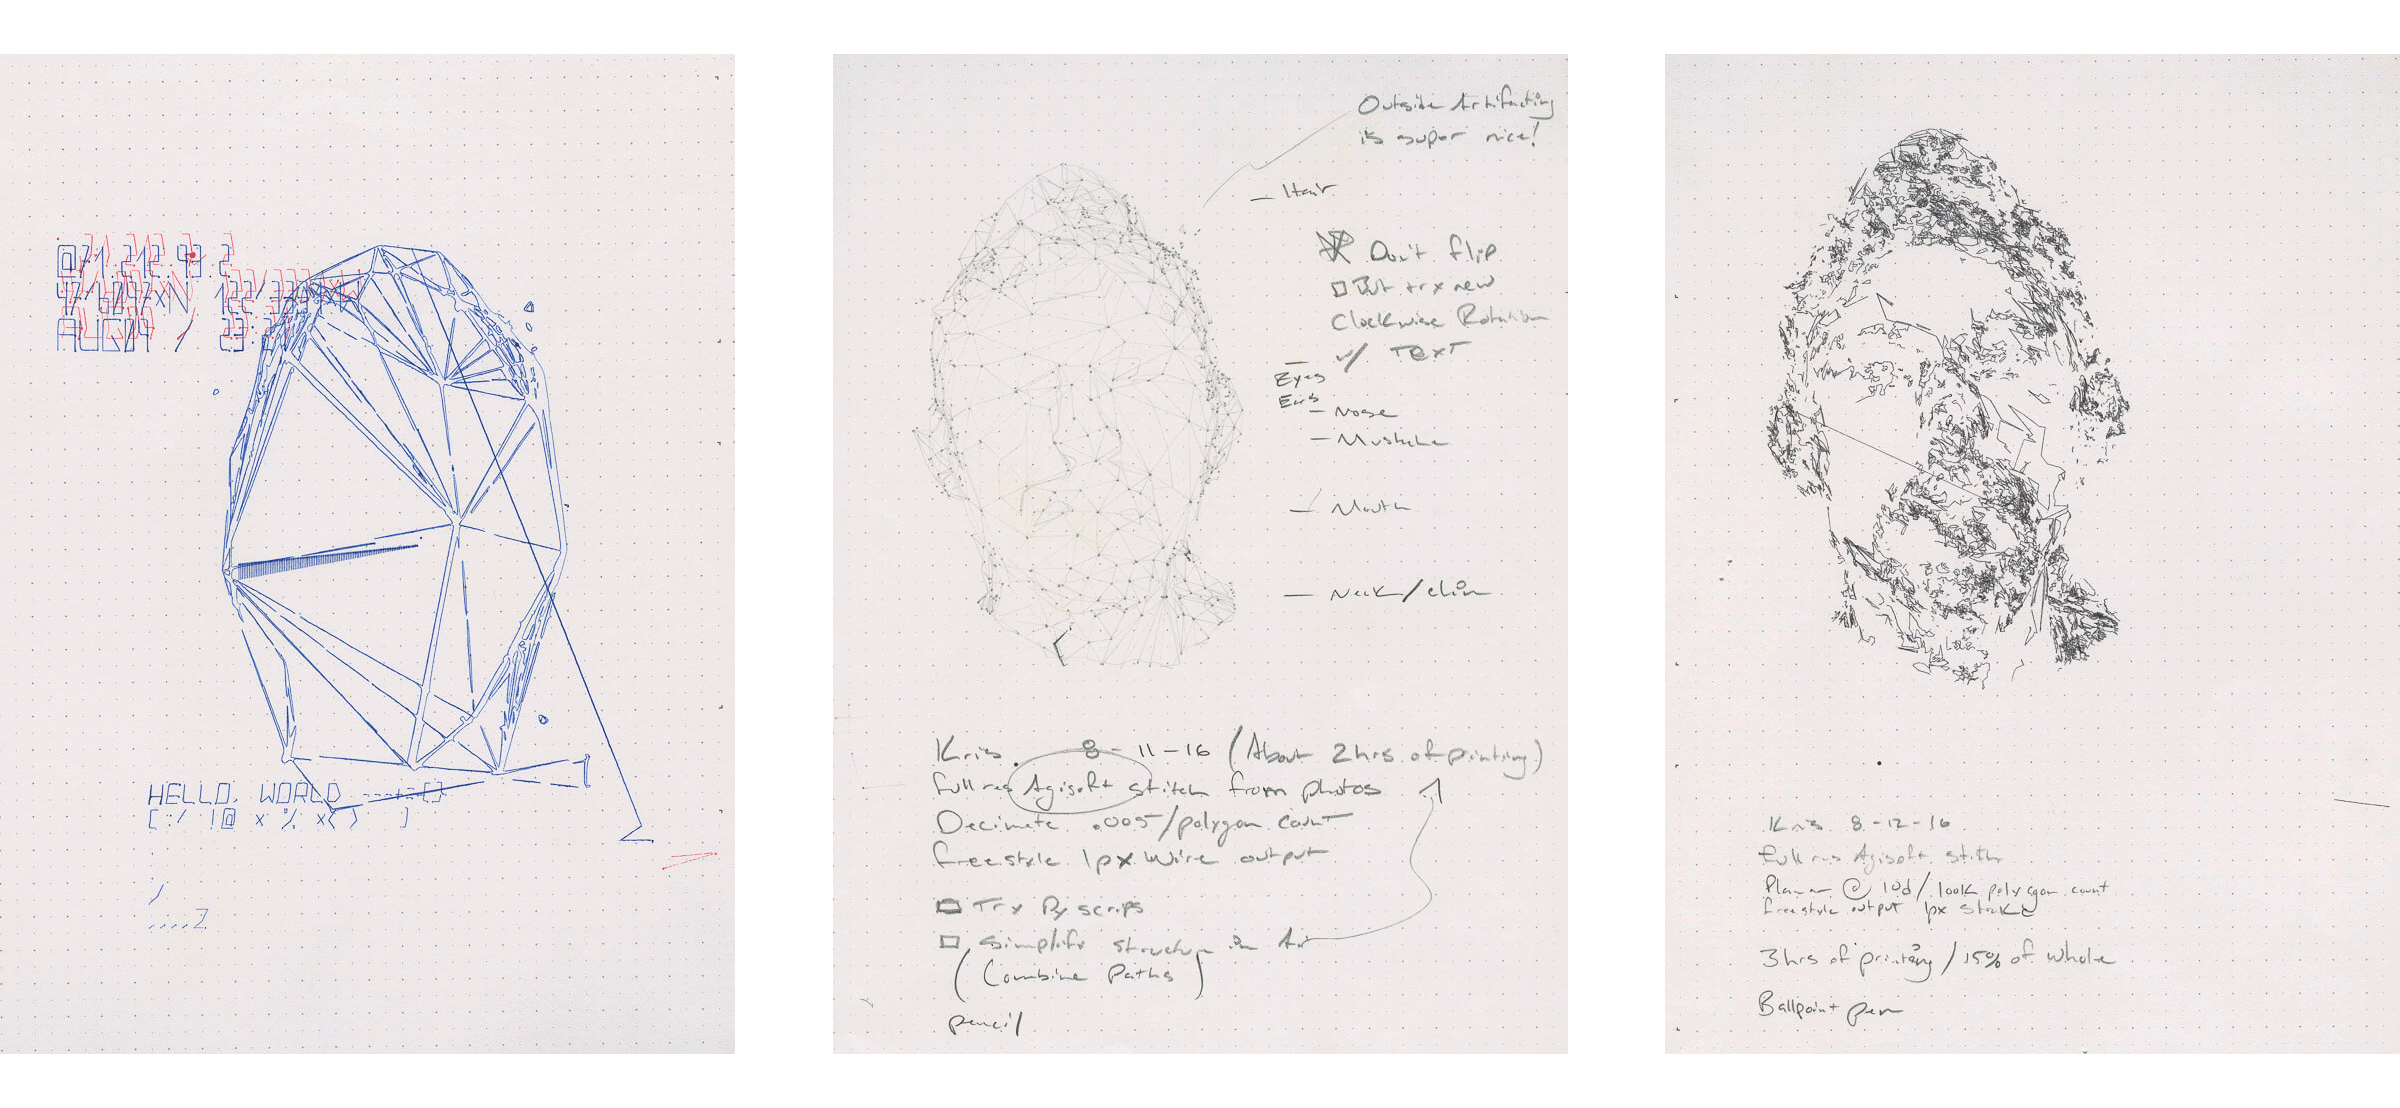 HELLO, WORLD ----+=[]
[ :/ !@ x % x( ) ]
Outside Artifacting
is super nice!
Hair
Don't flip
But try new
Clockwise Rotation
w/ TEXT
Eyes
Ears
Nose
Mustache
Mouth
Neck/chin
Kris. 8-11-16 (About 2hrs of printing)
full res Agisoft stitch from photos
Decimate .005/polygon count
freestyle 1px wire output
Try Py scripts
Simplify structure in Air
(Combine Paths)
pencil
Kris 8-12-16
full res Agisoft stitch
Planar @ 10d/100k polygon count
freestyle output 1px stroke
3hrs of printing/15% of whole
Ballpoint pen